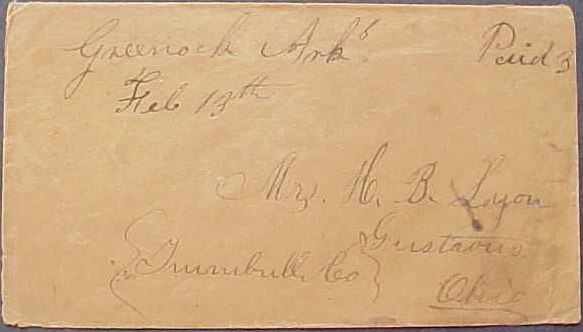 Greenock Arks. Paid 3
Feb 13th
Mr. H. B. Lyon
Gustavus
Trumbull Co
Ohio